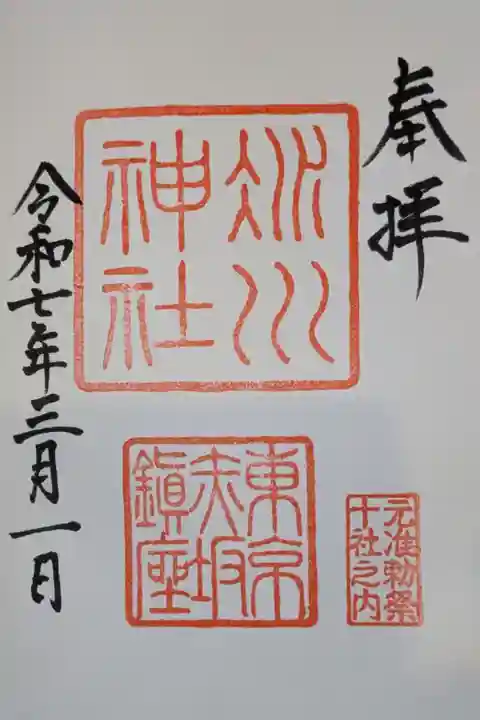 奉拝
氷川
神社
東京
赤坂
鎮座
元准勅祭
十社之内
令和七年三月一日